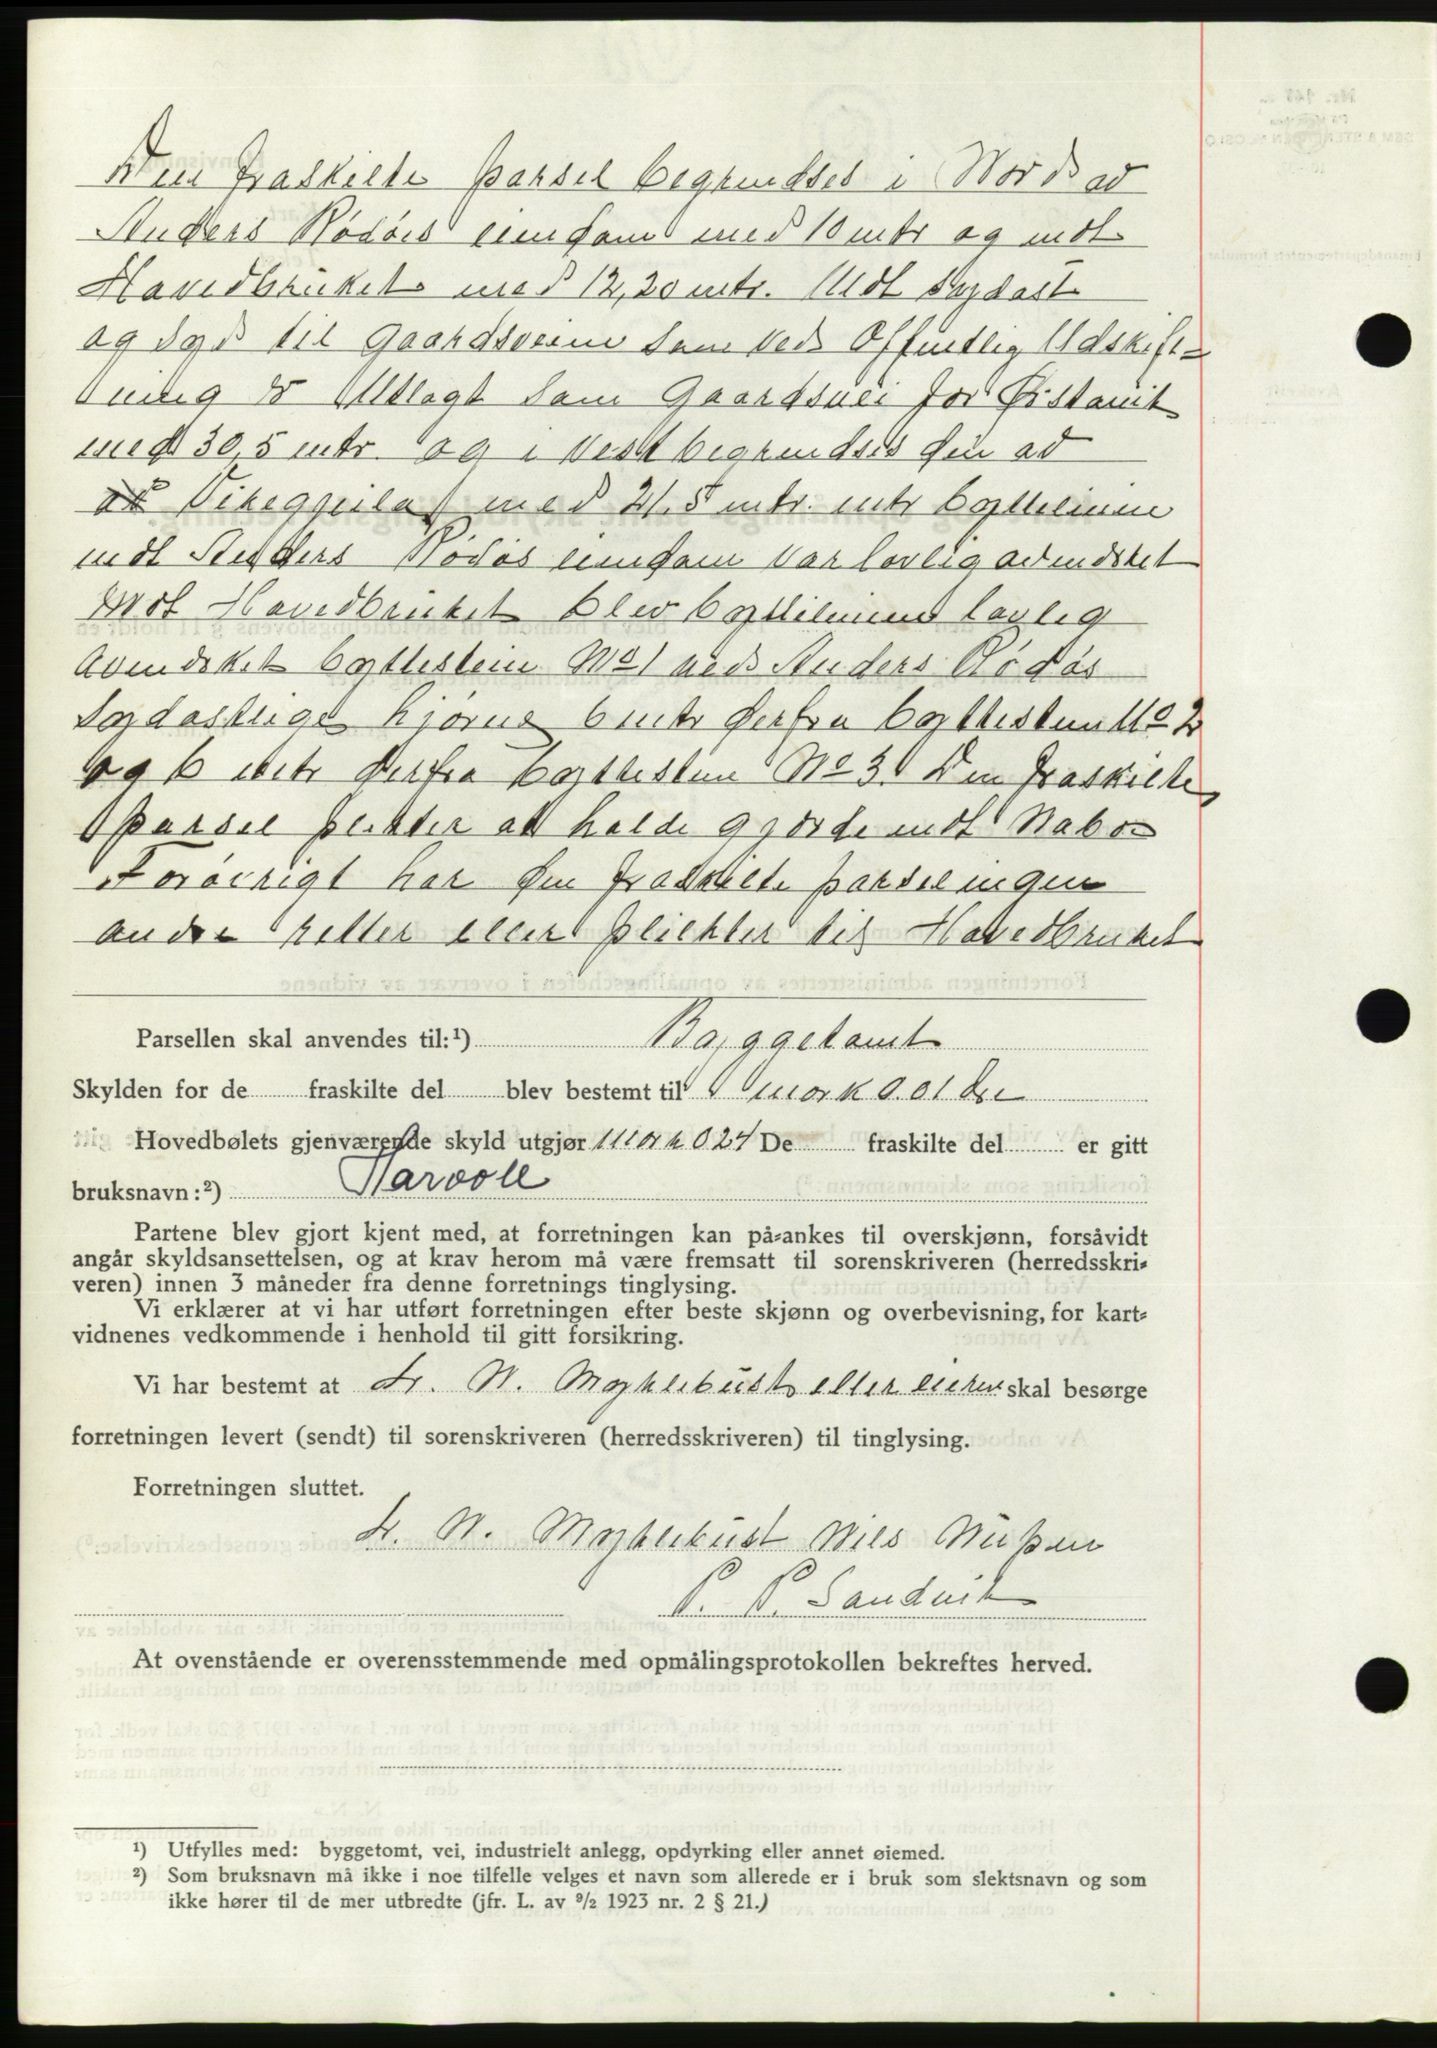 Den fraskilte parsel begrendses i Nord av
Anders Rødøis eiendom med 10 mtr og mdt
Havedbruket med 12,20 mtr. Mdt Sydøst
og Syd til Gaardsveien som ved Offentlig Udskift-
ning er Utlagt som Gaardsvei for Ørstavik
med 30,5 mtr. og i Vest begrendses den av
med 21.5 mtr. mtr byttelinien
mdt Anders Rødøs eiendom var lovlig avmdsket
Mot Havedbruket blev byttelinien lovlig
avmdsket byttestein No 1 ved Anders Rødøs
Sydøstlige hjørne 6 mtr derfra byttestein No 2
og 6 mtr derfra byttestein No 3. Den fraskilte
parsel plikter at holde gjærde mdt Nabo-
Forøvrigt har den fraskilte parsel ingen
andre retter eller plikter til Havedbruket
Parsellen skal anvendes til:¹) Byggetomt
Skylden for de fraskilte del blev bestemt til mark 0.01 øre
Hovedbølets gjenværende skyld utgjør mark 0 24 De fraskilte del er gitt
bruksnavn:²) Harvoll
Partene blev gjort kjent med, at forretningen kan på-ankes til overskjønn, forsåvidt
angår skyldsansettelsen, og at krav herom må være fremsatt til sorenskriveren (herredsskri-
veren) innen 3 måneder fra denne forretnings tinglysing.
Vi erklærer at vi har utført forretningen efter beste skjønn og overbevisning, for kart-
vidnenes vedkommende i henhold til gitt forsikring.
Vi har bestemt at L. N. Myklebust eller eieren skal besørge
forretningen levert (sendt) til sorenskriveren (herredsskriveren) til tinglysing.
Forretningen sluttet.
L. N. Myklebust Nils
P. P. Sandvik
At ovenstående er overensstemmende med opmålingsprotokollen bekreftes herved.
¹) Utfylles med: byggetomt, vei, industrielt anlegg, opdyrking eller annet øiemed.
²) Som bruksnavn må ikke i noe tilfelle velges et navn som allerede er i bruk som slektsnavn og som
ikke hører til de mer utbredte (jfr. L. av ⁹/₂ 1923 nr. 2 § 21.)